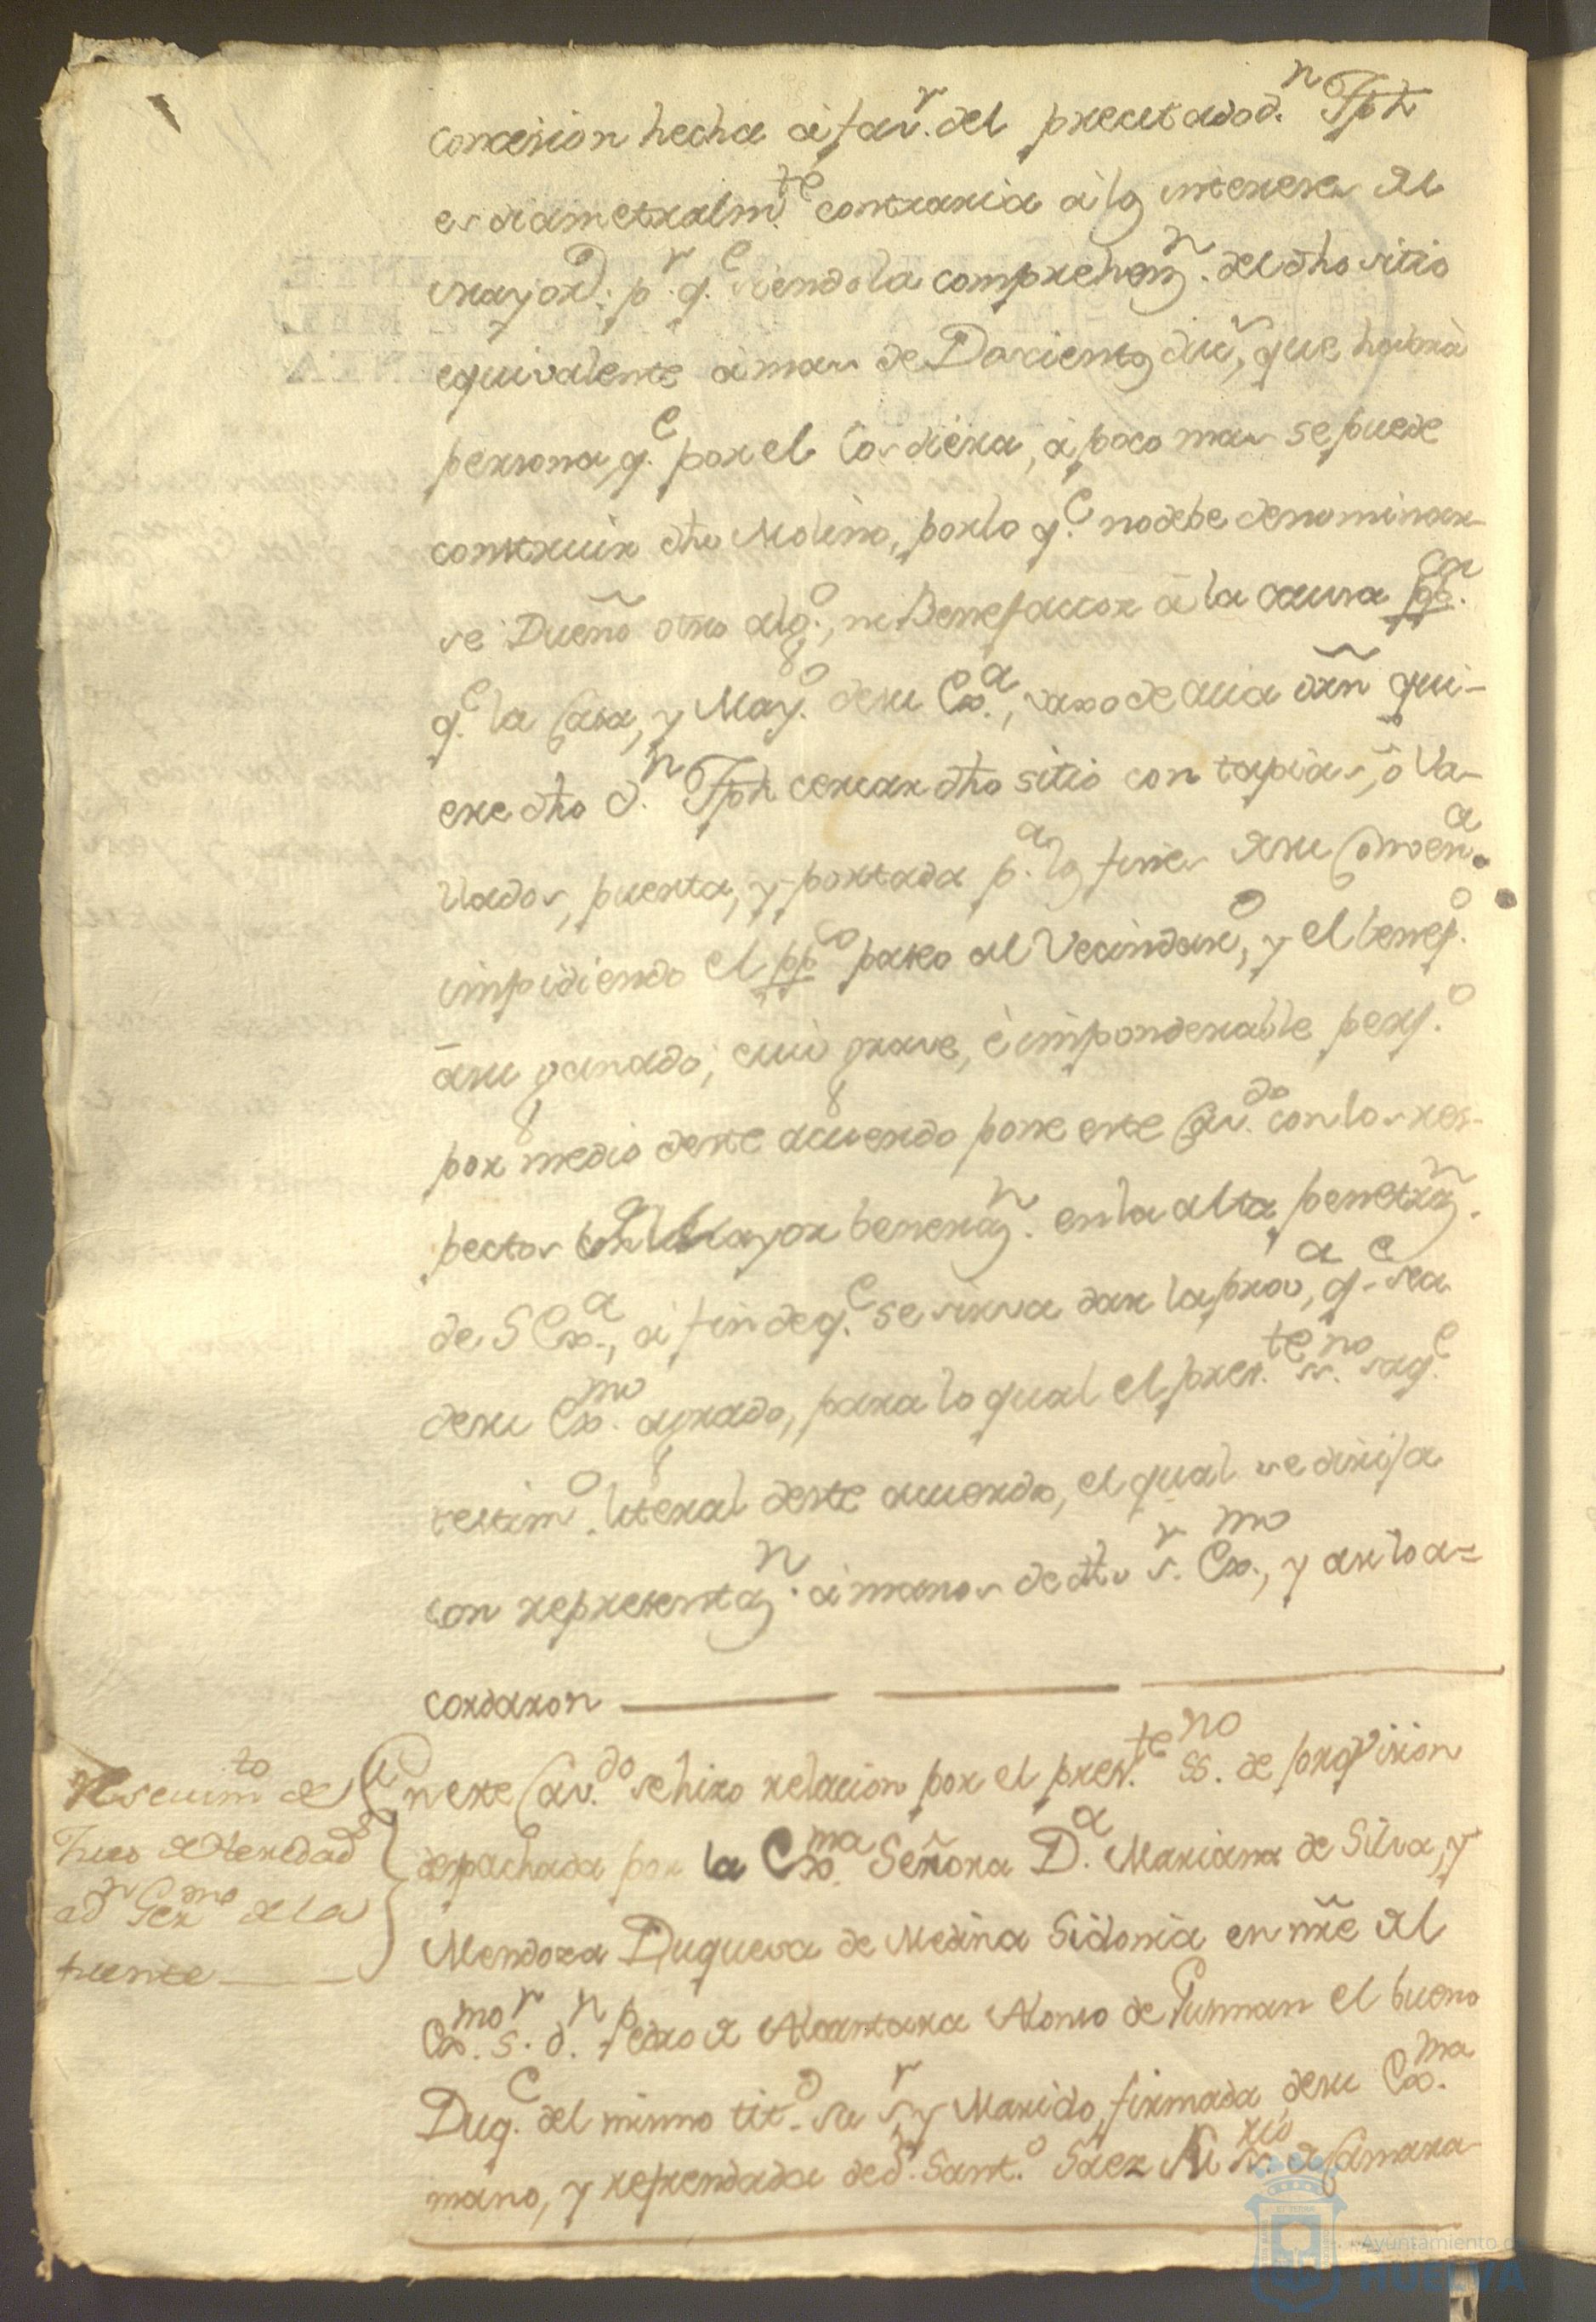 concesion hecha à fav.r del precitado d.n Jph
es diametralm.te contraria à los intereses del
mayord: p.r q.e siendo la comprehenz.n del dho sitio
equivalente à mas de Dosciento duc.s, que habrà
persona, q.e por el los diera, à poco mas se puede
construir dho Molino, por lo q.e no debe denominar-
se Dueño otro alg.o, ni Benefactor à la causa ppca.
q.e la Casa, y May.o de su Ex.a, vaxo de cuia orñ qui-
ere dho d.n Jph cercar dho sitio con tapias, ò Va-
llados, puerta, y portada p.a los fines de su Combena.
impidiendo el ppco paseo al Vecindaro, y el benef.o
à su ganado; cuio grave, è imponderable perj.o
por medio deste acuerdo pone este Cav.do con los res-
pectos mayor beneraz.n en la alta penetraz.n
de S Ex.a, à fin de q.e se sirva dar la prov.a q.e sea
de su Ex.mo agrado, para lo qual el pres.te ss.no saq.e
testim.o literal deste acuerdo, el qual se dirija
con representaz.n à manos de dho s.r Ex.mo, y asi lo a=
cordaron
Resevim.to de
Juro de Heredad
ad Gen de la
fuente
En este Cav.do se hizo relacion por el pres.te ss.no de provision
despachada por la Ex.ma Señora D.a Mariana de Silva, y
Mendoza Duquesa de Medina Sidonia en nre del
Ex.mo s.r d.n Pedro de Alcantara Alonso de Gusman el bueno
Duq.e del mismo tit.o su s.r y Marido, firmada de su Ex.ma
mano, y reprendada de d.n Sant.o Saez su ss.rio de Camara
Ayuntamiento de
HUELVA